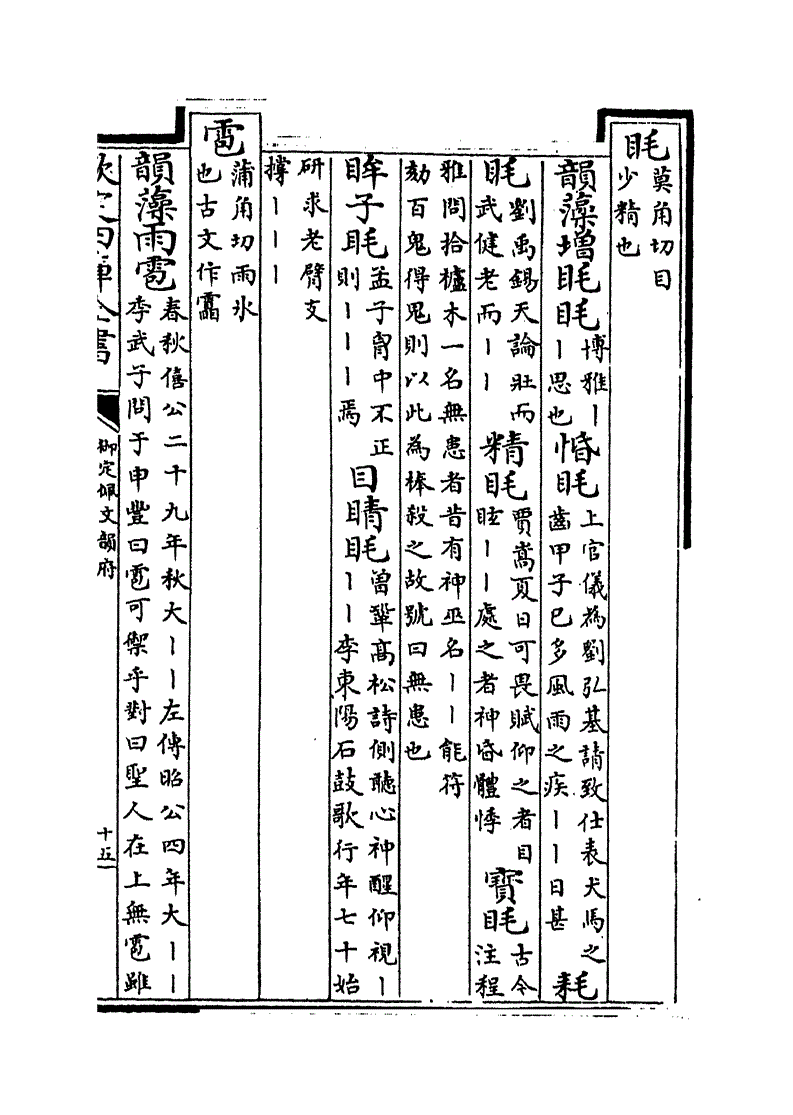 眊莫角切目
少精也
韻藻增眊眊博雅丨
丨思也惛眊上官儀為劉弘基請致仕表犬馬之
齒甲子已多風雨之疾丨丨日甚耗
眊劉禹錫天論壯而
武健老而丨丨精眊賈嵩夏日可畏賦仰之者目
眩丨丨處之者神昏體悸寶眊古今
注程
雅問拾櫨木一名無患者昔有神巫名丨丨能符
劾百鬼得鬼則以此為棒殺之故號曰無患也
眸子眊孟子胷中不正
則丨丨丨焉目睛眊曽鞏髙松詩側聽心神醒仰視丨
丨丨李東陽石鼓歌行年七十始
研求老臂支
撐丨丨丨
雹蒲角切雨氷
也古文作靁
韻藻雨雹春秋僖公二十九年秋大丨丨左傳昭公四年大丨丨
李武子問于申豐曰雹可禦乎對曰聖人在上無雹雖
欽定四庫全書
御定佩文韻府
十五